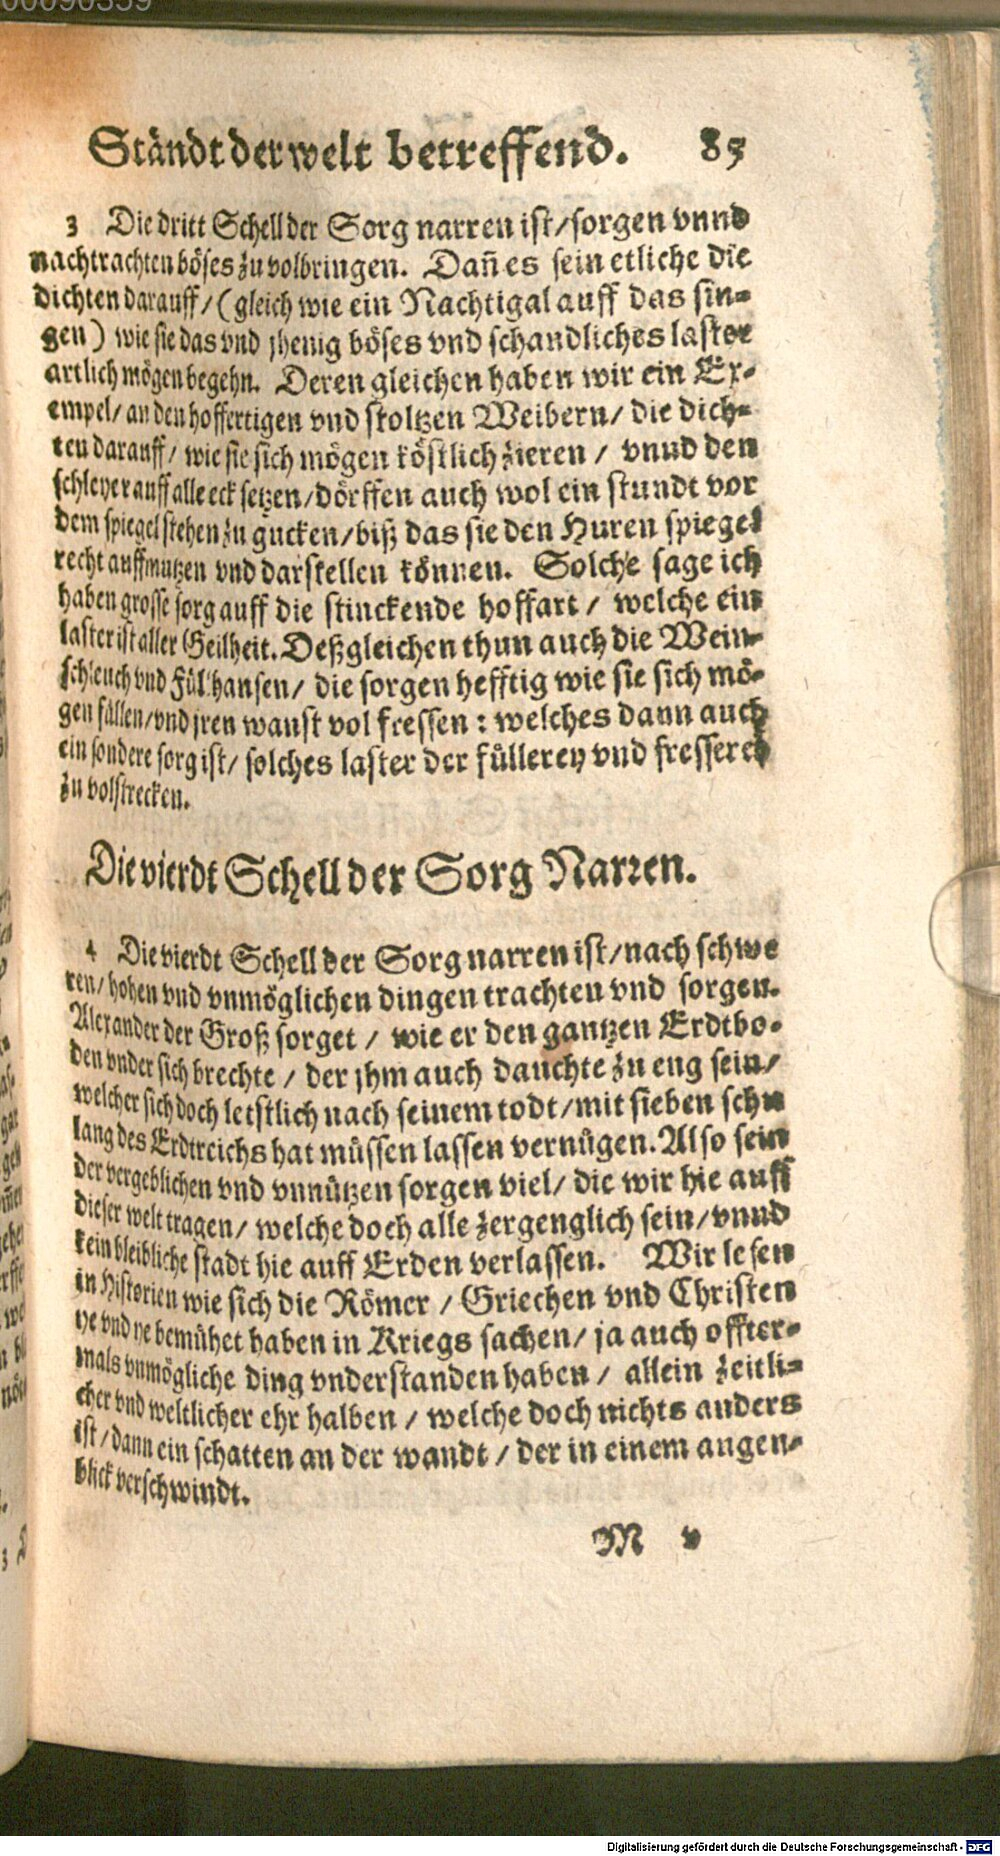 00090359
Ständt der welt betreffend. 85
3 Die dritt Schell der Sorg narren ist/sorgen vnnd
nachtrachten böses zu volbringen. Dañ es sein etliche die
dichten darauff/(gleich wie ein Nachtigal auff das sin=
gen) wie sie das vnd jhenig böses vnd schandliches laster
artlich mögen begehn. Deren gleichen haben wir ein Ex=
empel/an den hoffertigen vnd stoltzen Weibern/ die dich=
ten darauff/ wie sie sich mögen köstlich zieren / vnnd den
schleyer auff alle eck setzen/dörffen auch wol ein stundt vor
dem spiegel stehen zu gucken/biß das sie den Huren spiegel
recht auffmutzen vnd darstellen können. Solche sage ich
haben grosse sorg auff die stinckende hoffart / welche ein
laster ist aller Geilheit. Deßgleichen thun auch die Wein=
schleuch vnd Füllhansen/ die sorgen hefftig wie sie sich mö=
gen füllen/vnd jren wanst vol fressen : welches dann auch
ein sondere sorg ist/ solches laster der füllerey vnd fresserey
zu volstrecken.
Die vierdt Schell der Sorg Narren.
4 Die vierdt Schell der Sorg narren ist/nach schwe
ren/hohen vnd vnmöglichen dingen trachten vnd sorgen.
Alexander der Groß sorget / wie er den gantzen Erdtbo=
den vnder sich brechte / der jhm auch dauchte zu eng sein/
welcher sich doch letstlich nach seinem todt/mit sieben schu
lang des Erdtreichs hat müssen lassen vernügen. Also sein
der vergeblichen vnd vnnützen sorgen viel/ die wir hie auff
dieser welt tragen/ welche doch alle zergenglich sein/vnnd
kein bleibliche stadt hie auff Erden verlassen. Wir lesen
in Historien wie sich die Römer / Griechen vnd Christen
ye vnd ye bemühet haben in Kriegs sachen/ ja auch offter=
mals vnmögliche ding vnderstanden haben / allein zeitli=
cher vnd weltlicher ehr halben / welche doch nichts anders
ist/dann ein schatten an der wandt / der in einem augen=
blick verschwindt.
M v
Digitalisierung gefördert durch die Deutsche Forschungsgemeinschaft - DFG